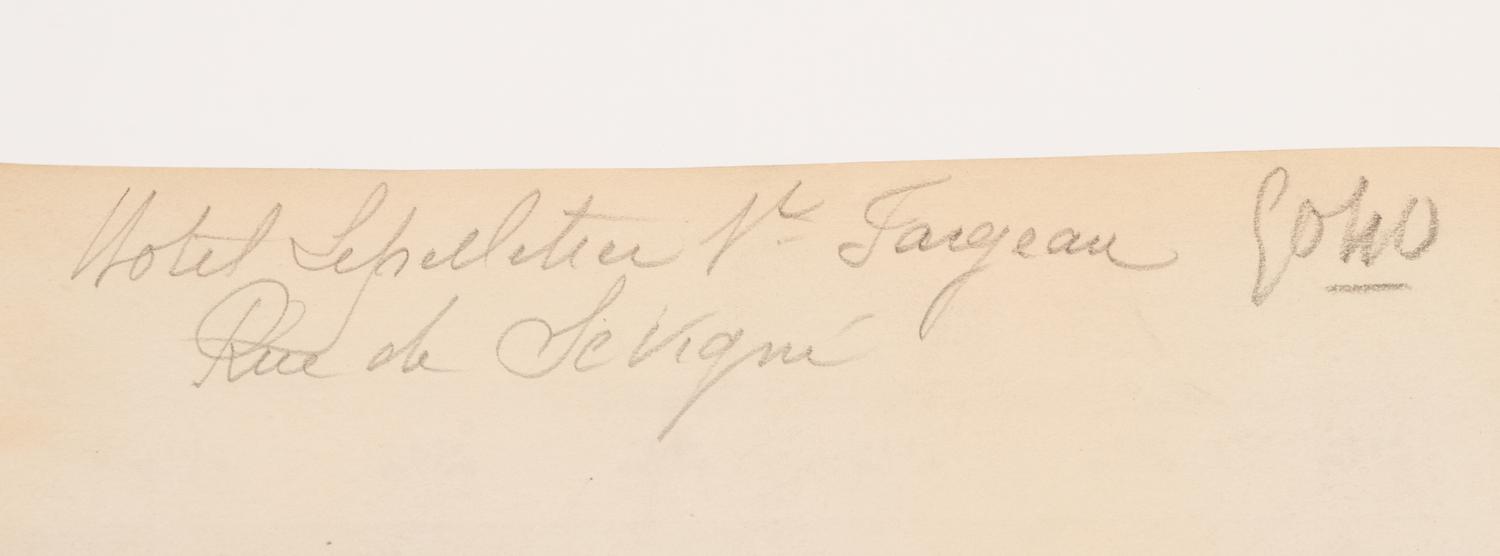 Hotel Lepelletier St Fargeau
Rue de Sévigné